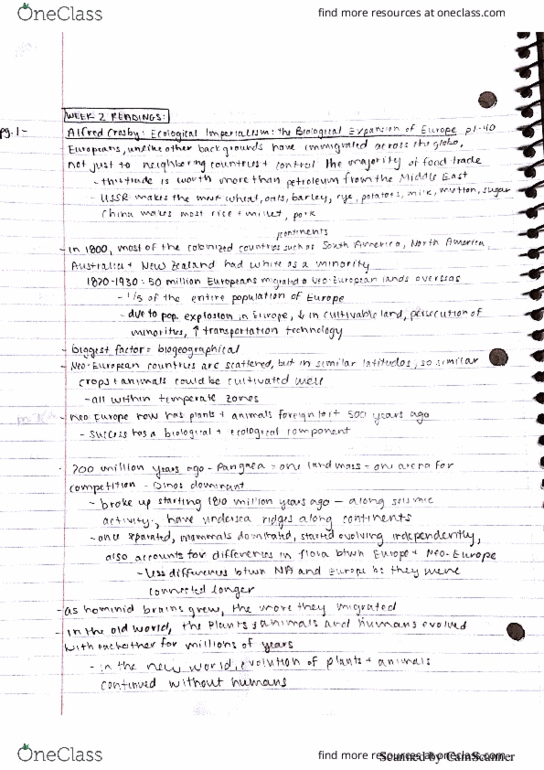 OneClass
find more resources at oneclass.com
WEEK 2 READINGS:
pg. 1-
Alfred Crosby: Ecological Imperialism: the Biological Expansion of Europe p1-40
Europeans, unlike other backgrounds have immigrated across the globe,
not just to neighboring countries + control the majority of food trade
- this trade is worth more than petroleum from the Middle East
- USSR makes the most wheat, oats, barley, rye, potatoes, milk, mutton, sugar
China makes most rice + millet, pork
continents
- in 1800, most of the colonized countries such as South America, North America,
Australia + New Zealand had white as a minority
1820-1930: 50 million Europeans migrated to Neo-European lands overseas
- 1/5 of the entire population of Europe
- due to pop. explosion in Europe, ↓ in cultivable land, persecution of
minorities, ↑ transportation technology
- biggest factor = biogeographical
- Neo-European countries are scattered, but in similar latitudes, so similar
crops + animals could be cultivated well
- all within temperate zones
- Neo Europe now has plants + animals foreign to it 500 years ago
- success has a biological + ecological component
- 200 million years ago - Pangaea = one land mass = one arena for
competition - Dinos dominant
- broke up starting 180 million years ago - along seismic
activity, have undersea ridges along continents
- once separated, mammals dominated, started evolving independently,
also accounts for differences in flora btwn Europe + Neo-Europe
- less differences btwn NA and Europe bc they were
connected longer
- as hominid brains grew, the more they migrated
- in the old world, the plants & animals and humans evolved
with eachother for millions of years
- in the new world, evolution of plants + animals
continued without humans
OneClass
find more resources at oneclass.com
Scanned by CamScanner